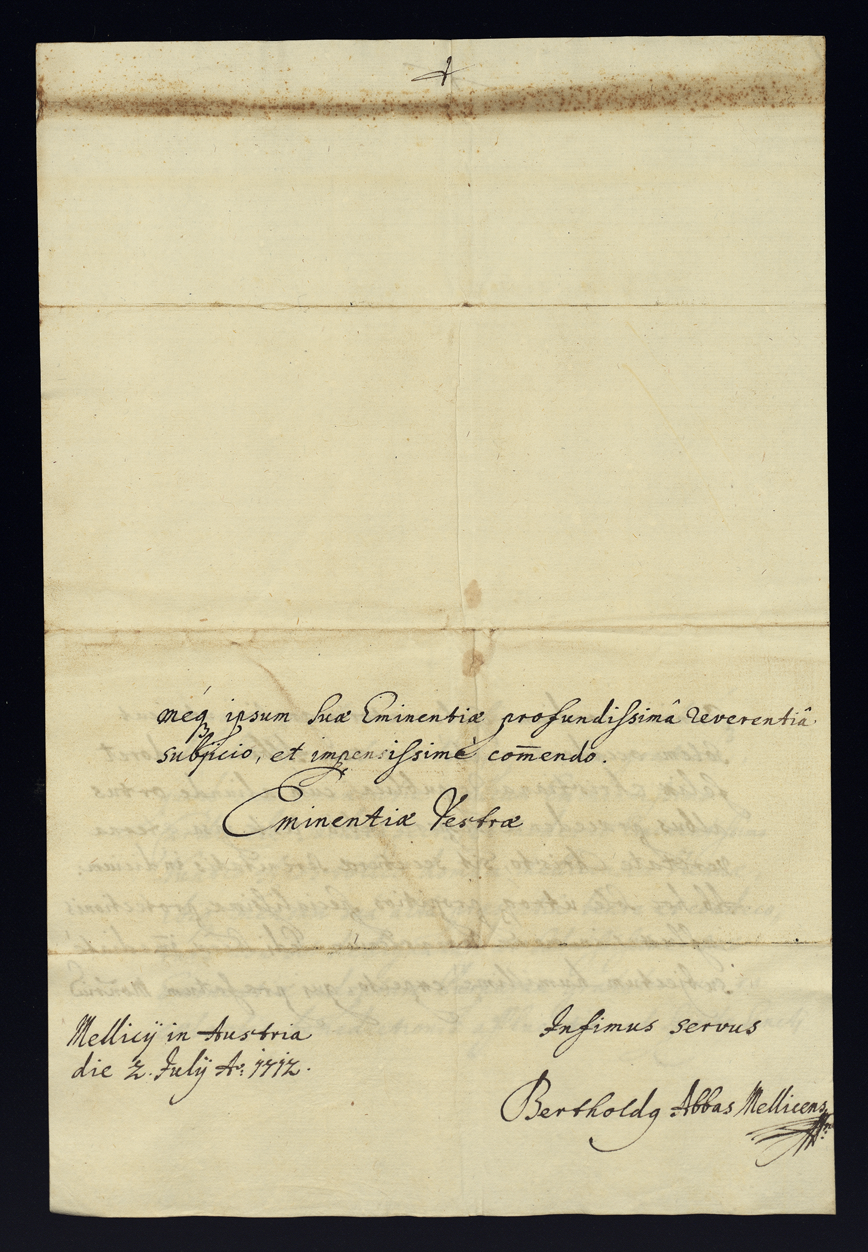 meq́ꝫ ipsum Suæ Eminentiæ profundissimâ reverentiâ
subjicio, et impensissimè com̄endo.
Eminentiæ Vestræ
Mellicÿ in Austria
die 2. Julÿ Aº: 1712.
Infimus servus
Bertholdꝯ Abbas Mellicens